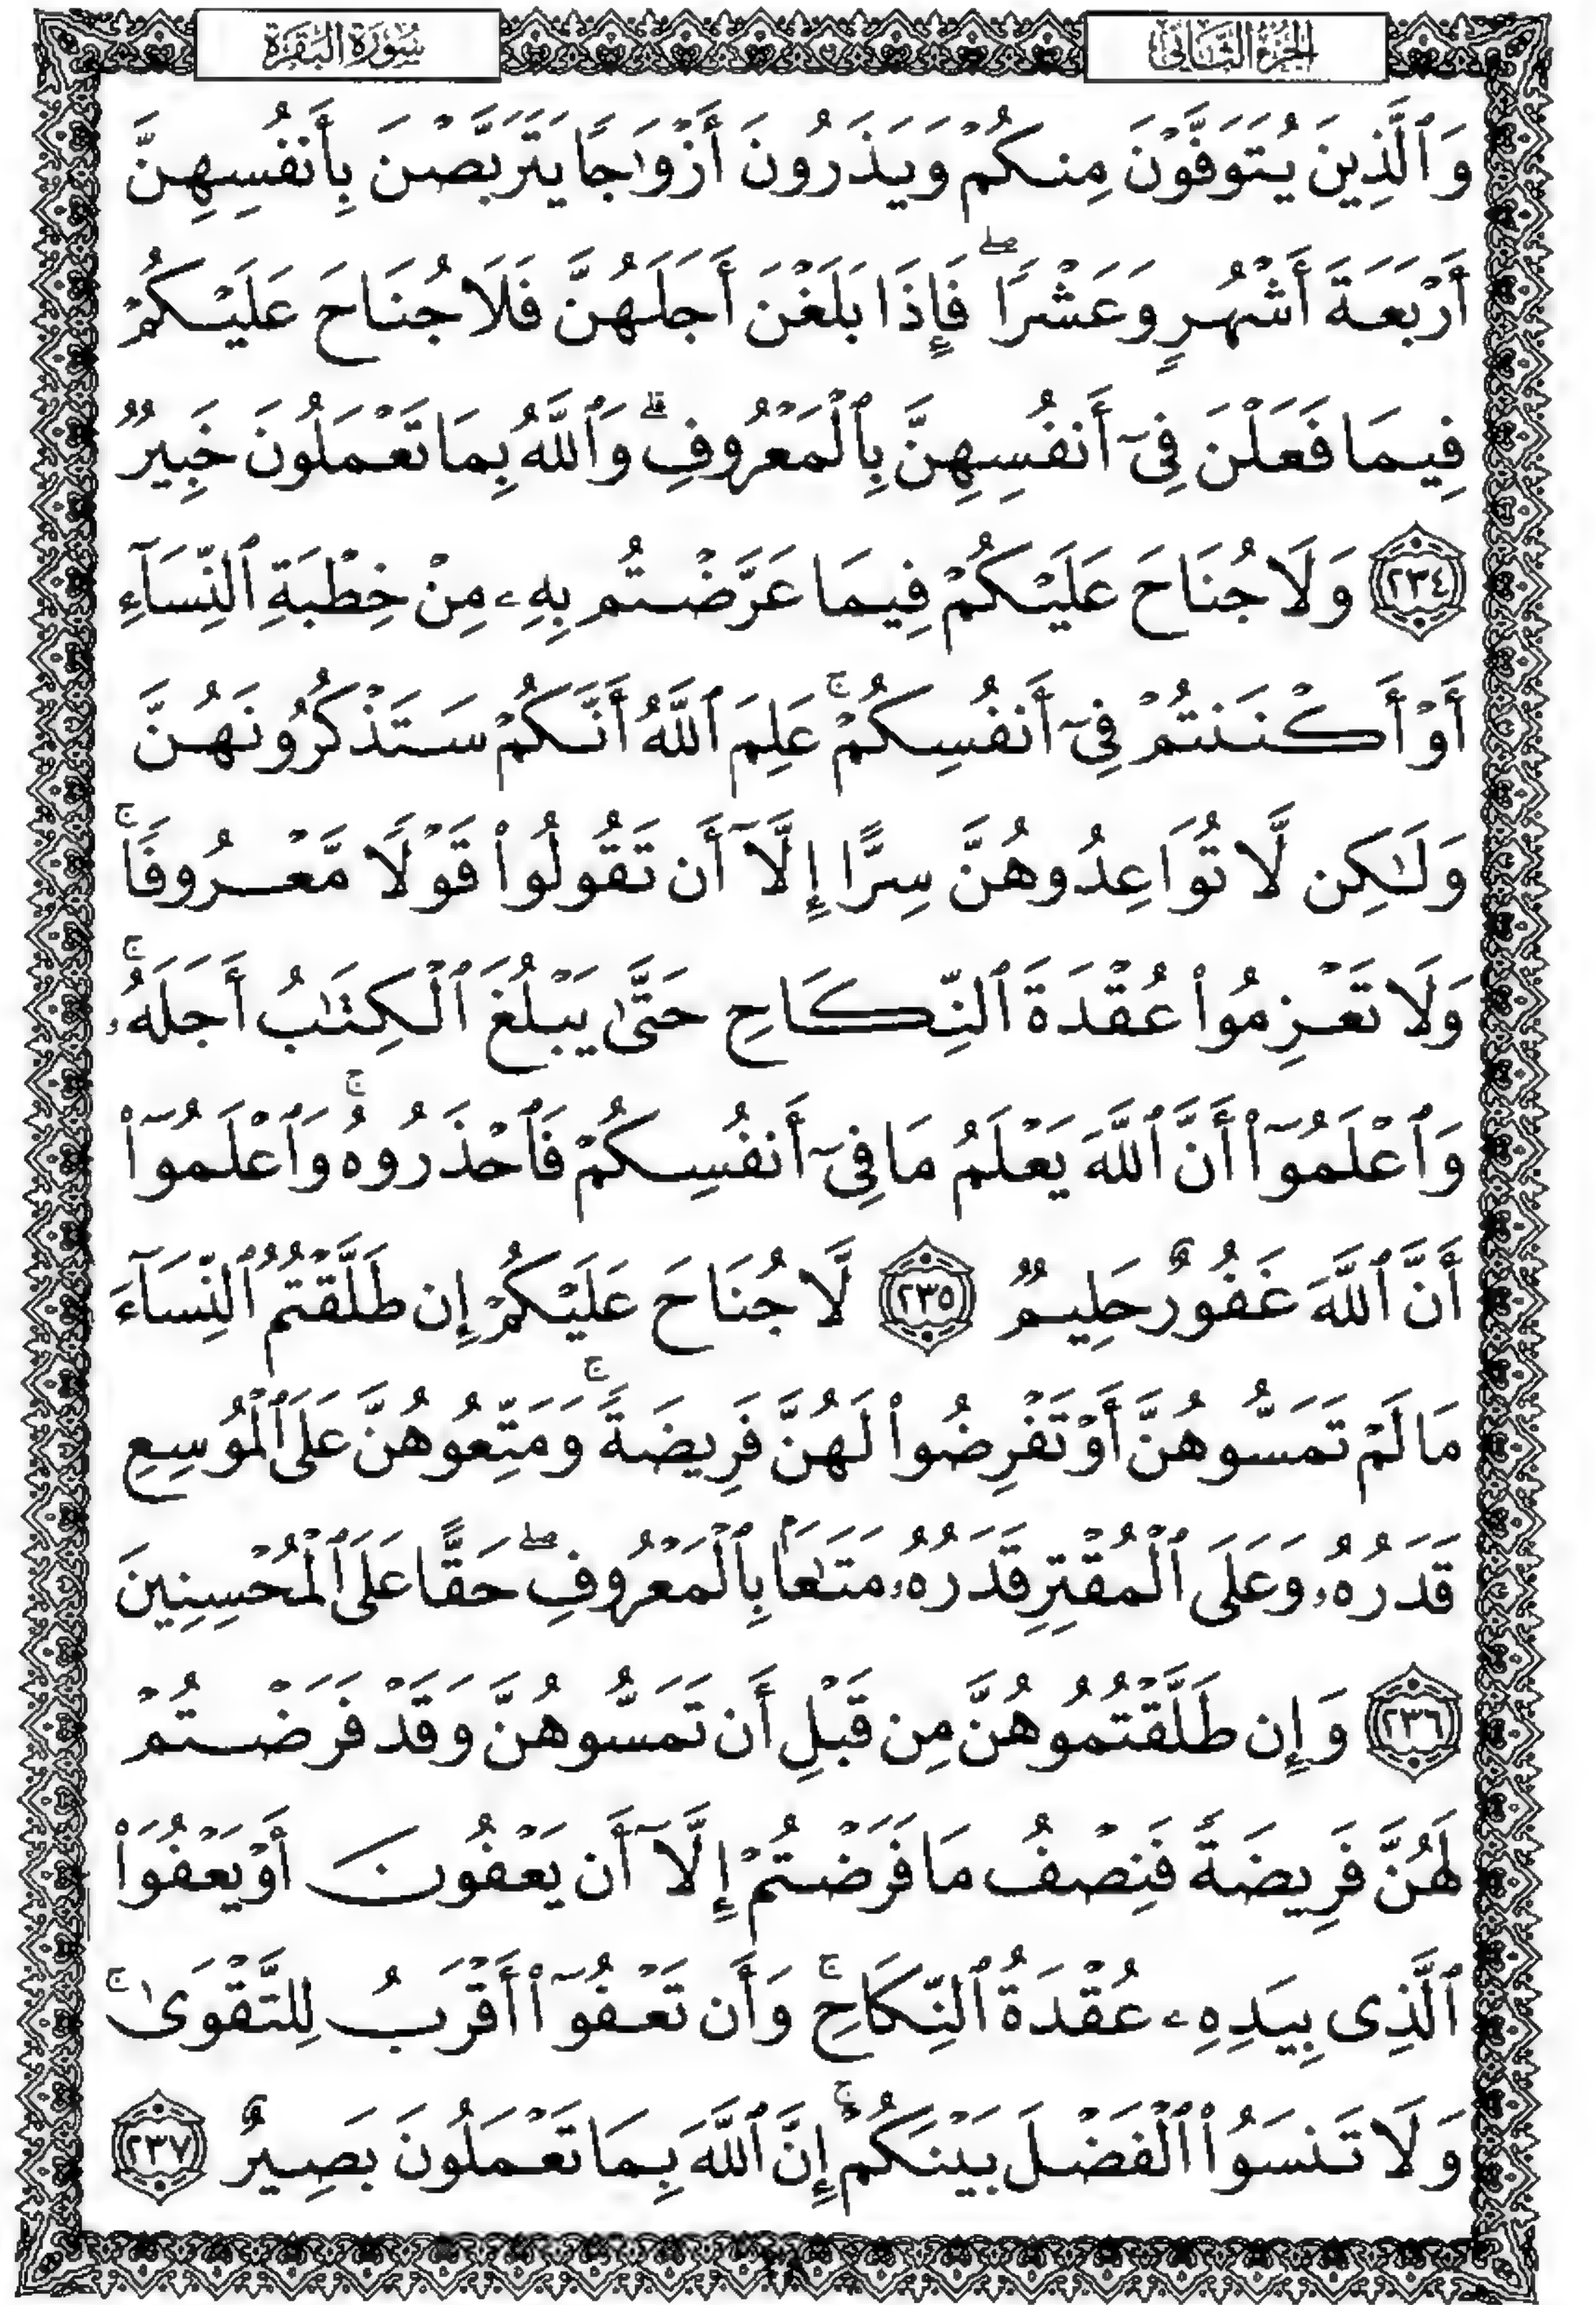 الجزء الثاني
سورة البقرة
وَٱلَّذِينَ يُتَوَفَّوْنَ مِنكُمْ وَيَذَرُونَ أَزْوَٰجًا يَتَرَبَّصْنَ بِأَنفُسِهِنَّ
أَرْبَعَةَ أَشْهُرٍ وَعَشْرًا ۖ فَإِذَا بَلَغْنَ أَجَلَهُنَّ فَلَا جُنَاحَ عَلَيْكُمْ
فِيمَا فَعَلْنَ فِىٓ أَنفُسِهِنَّ بِٱلْمَعْرُوفِ ۗ وَٱللَّهُ بِمَا تَعْمَلُونَ خَبِيرٌ
٢٣٤ وَلَا جُنَاحَ عَلَيْكُمْ فِيمَا عَرَّضْتُم بِهِۦ مِنْ خِطْبَةِ ٱلنِّسَآءِ
أَوْ أَكْنَنتُمْ فِىٓ أَنفُسِكُمْ ۚ عَلِمَ ٱللَّهُ أَنَّكُمْ سَتَذْكُرُونَهُنَّ
وَلَـٰكِن لَّا تُوَاعِدُوهُنَّ سِرًّا إِلَّآ أَن تَقُولُوا۟ قَوْلًا مَّعْرُوفًا ۚ
وَلَا تَعْزِمُوا۟ عُقْدَةَ ٱلنِّكَاحِ حَتَّىٰ يَبْلُغَ ٱلْكِتَـٰبُ أَجَلَهُۥ ۚ
وَٱعْلَمُوٓا۟ أَنَّ ٱللَّهَ يَعْلَمُ مَا فِىٓ أَنفُسِكُمْ فَٱحْذَرُوهُ ۚ وَٱعْلَمُوٓا۟
أَنَّ ٱللَّهَ غَفُورٌ حَلِيمٌ ٢٣٥ لَّا جُنَاحَ عَلَيْكُمْ إِن طَلَّقْتُمُ ٱلنِّسَآءَ
مَا لَمْ تَمَسُّوهُنَّ أَوْ تَفْرِضُوا۟ لَهُنَّ فَرِيضَةً ۚ وَمَتِّعُوهُنَّ عَلَى ٱلْمُوسِعِ
قَدَرُهُۥ وَعَلَى ٱلْمُقْتِرِ قَدَرُهُۥ مَتَـٰعًۢا بِٱلْمَعْرُوفِ ۖ حَقًّا عَلَى ٱلْمُحْسِنِينَ
٢٣٦ وَإِن طَلَّقْتُمُوهُنَّ مِن قَبْلِ أَن تَمَسُّوهُنَّ وَقَدْ فَرَضْتُمْ
لَهُنَّ فَرِيضَةً فَنِصْفُ مَا فَرَضْتُمْ إِلَّآ أَن يَعْفُونَ أَوْ يَعْفُوَا۟
ٱلَّذِى بِيَدِهِۦ عُقْدَةُ ٱلنِّكَاحِ ۚ وَأَن تَعْفُوٓا۟ أَقْرَبُ لِلتَّقْوَىٰ ۚ
وَلَا تَنسَوُا۟ ٱلْفَضْلَ بَيْنَكُمْ ۚ إِنَّ ٱللَّهَ بِمَا تَعْمَلُونَ بَصِيرٌ ٢٣٧